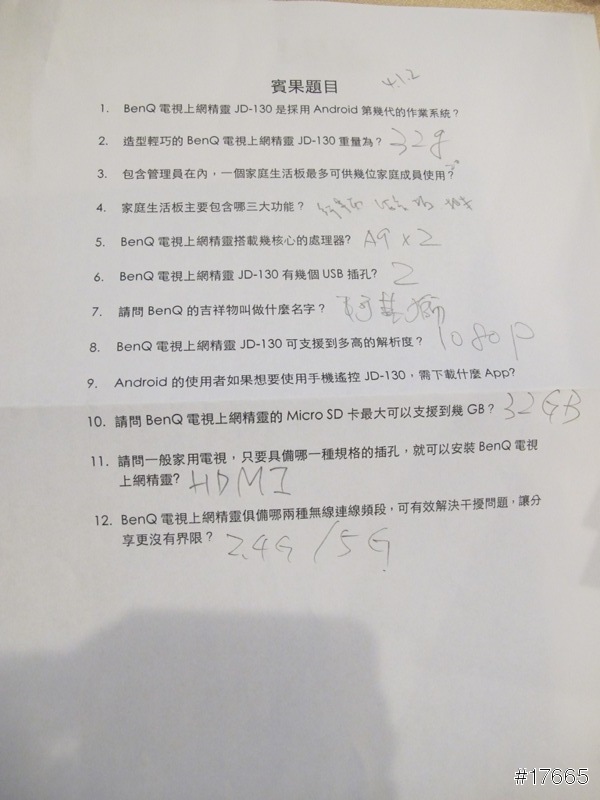 賓果題目 4.1.2
1. BenQ 電視上網精靈 JD-130 是採用 Android 第幾代的作業系統？
2. 造型輕巧的 BenQ 電視上網精靈 JD-130 重量為？ 32g
3. 包含管理員在內，一個家庭生活板最多可供幾位家庭成員使用？
4. 家庭生活板主要包含哪三大功能？
5. BenQ 電視上網精靈搭載幾核心的處理器? A9 x 2
6. BenQ 電視上網精靈 JD-130 有幾個 USB 插孔? 2
7. 請問 BenQ 的吉祥物叫做什麼名字？
8. BenQ 電視上網精靈 JD-130 可支援到多高的解析度？ 1080p
9. Android 的使用者如果想要使用手機遙控 JD-130，需下載什麼 App?
10. 請問 BenQ 電視上網精靈的 Micro SD 卡最大可以支援到幾 GB？ 32GB
11. 請問一般家用電視，只要具備哪一種規格的插孔，就可以安裝 BenQ 電視
上網精靈? HDMI
12. BenQ 電視上網精靈俱備哪兩種無線連線頻段，可有效解決干擾問題，讓分
享更沒有界限？ 2.4G / 5G
#17665